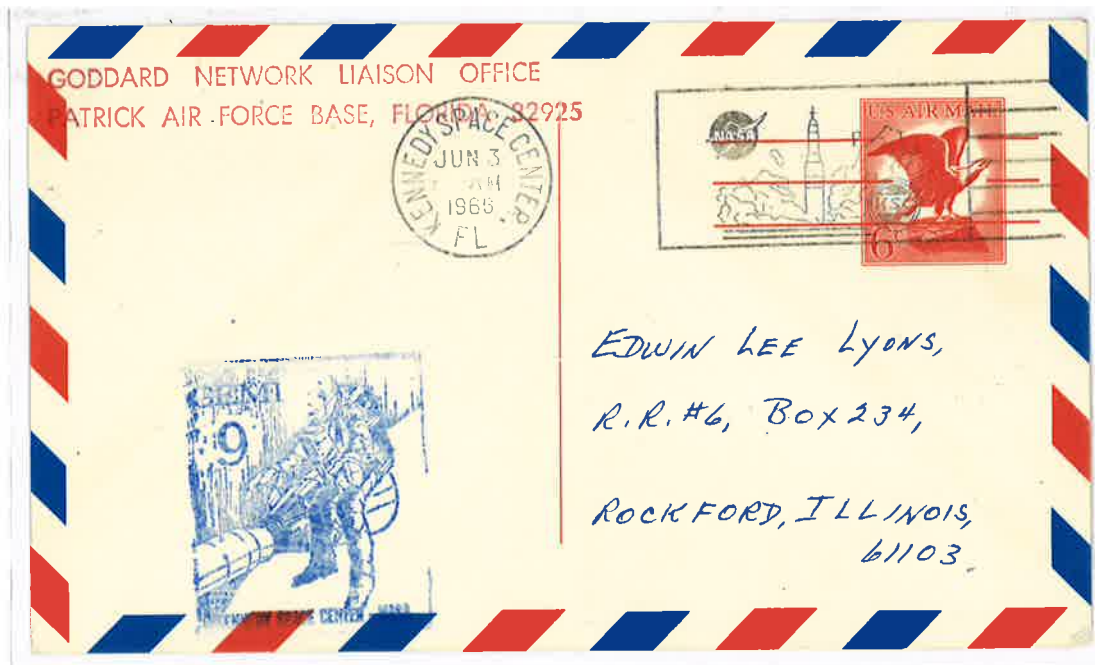 GODDARD NETWORK LIAISON OFFICE
PATRICK AIR FORCE BASE, FLORIDA 32925
KENNEDY SPACE CENTER
JUN 3
AM
1966
FL
NASA
U.S. AIR MAIL
6c
EDWIN LEE LYONS,
R.R.#6, BOX 234,
ROCKFORD, ILLINOIS,
61103.
GEMINI
9
KENNEDY SPACE CENTER NASA